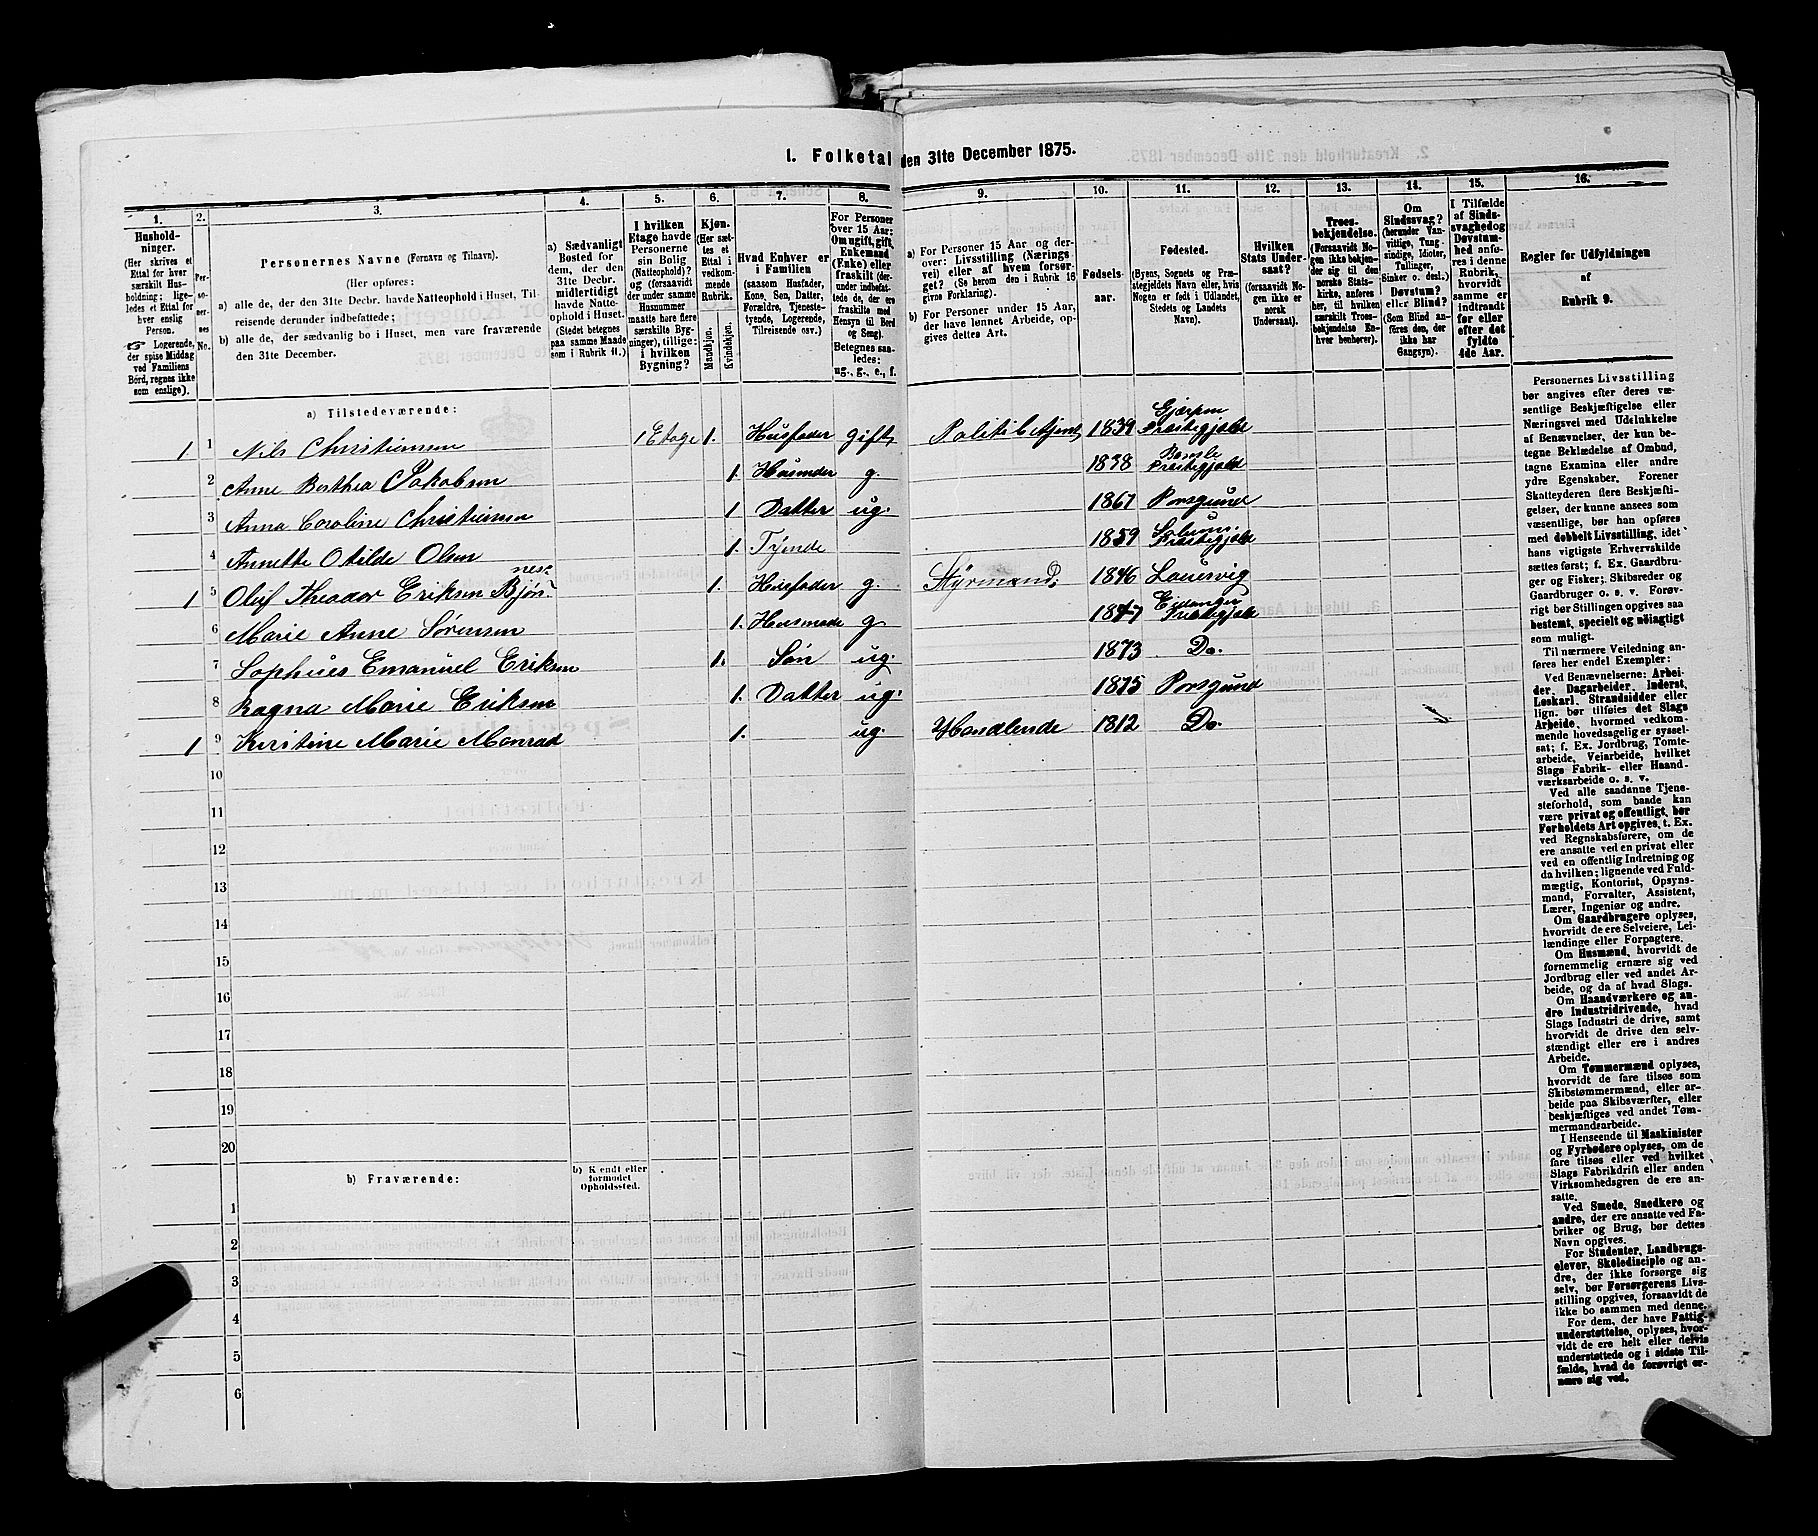 1. Folketal den 31te December 1875.
1. 2. 3. 4. 5. 6. 7. 8. 9. 10. 11. 12. 13. 14. 15. 16.
Husholdninger.
(Her skrives et
Ettal for hver
særskilt Hus-
holdning; lige-
ledes et Ettal for
hver enslig
Person.
Logerende,
der spise Middag
ved Familiens
Bord, regnes ikke
som enslige).
Per-
so-
ner-
nes
No.
Personernes Navne (Fornavn og Tilnavn).
(Her opføres:
a) alle de, der den 31te Decbr. havde Natteophold i Huset, Til-
reisende derunder indbefattede;
b) alle de, der sædvanlig bo i Huset, men vare fraværende
den 31te December.
a) Sædvanligt
Bosted for
dem, der den
31te Decbr.
midlertidigt
havde Natte-
ophold i Huset.
(Stedet betegnes
paa samme Maade
som i Rubrik 11.)
I hvilken
Etage havde
Personerne
sin Bolig
(Natteophold)?
og (forsaavidt
der under samme
Husnummer
maatte høre flere
særskilte Byg-
ninger), tillige:
i hvilken
Bygning?
Kjøn.
(Her sæt-
tes et
Ettal i
vedkom-
mende
Rubrik.
Mandkjøn.
Kvindekjøn.
Hvad Enhver er
i Familien
(saasom Husfader,
Kone, Søn, Datter,
Forældre, Tjeneste-
tyende, Logerende,
Tilreisende osv.)
For Personer
over 15 Aar:
Om ugift, gift,
Enkemand
(Enke) eller
fraskilt (der-
under indbefat-
tede de, der ere
fraskilte med
Hensyn til Bord
og Seng).
Betegnes saa-
ledes:
ug., g., e., f.
a) For Personer 15 Aar og der-
over: Livsstilling (Nærings-
vei) eller af hvem forsør-
get? (Se herom den i Rubrik 16
givne Forklaring).
b) For Personer under 15 Aar,
der have lønnet Arbeide, op-
gives dettes Art.
Fødsels-
aar.
Fødested.
(Byens, Sognets og Præ-
stegjeldets Navn eller, hvis
Nogen er født i Udlandet,
Stedets og Landets
Navn).
Hvilken
Stats Under-
saat?
(forsaavidt No-
gen ikke er
norsk
Undersaat).
Troes-
bekjendelse.
(Forsaavidt No-
gen ikke bekjen-
der sig til den
norske Stats-
kirke, anføres
her, til hvilken
særskilt Troes-
bekjendelse En-
hver henhører).
Om
Sindssvag?
(herunder Van-
vittige, Tung-
sindige, Idioter,
Tullinger,
Sinker o. desl.)
Døvstum?
eller Blind?
(Som Blind an-
føres den, der
ikke har
Gangsyn).
I Tilfælde
af Sinds-
svaghed og
Døvstum-
hed anfø-
res i denne
Rubrik,
hvorvidt
samme er
indtraadt
før eller
efter det
fyldte
4de Aar.
Regler for Udfyldningen
af
Rubrik 9.
a) Tilstedeværende:
1 1 Nils Christiansen 1 Etage 1. Husfader gift Politibetjent 1839 Gjærpen Præstegjeld
2 Anne Berthea Jakobsen 1. Husmoder g. 1838 Bamble Præstegjeld
3 Anna Caroline Christiansen 1 Datter ug. 1867 Porsgrund
4 Annette Otilde Olsen 1. Tyende 1859 Præstegjeld
1 5 Oluf Theodor Eriksen Bjøn- nes. 1. Husfader g. Styrmand 1846 Laurvig
6 Marie Anne Sørensen 1. Husmode g 1847 Eidanger Præstegjeld
7 Sophus Emanuel Eriksen 1. Søn ug. 1873 Do.
8 Ragna Marie Eriksen 1. Datter ug. 1875 Porsgrund
1 9 Kirstine Marie Monrad 1. ug. Handlende 1812 Do.
10
11
12
13
14
15
16
17
18
19
20
b) Fraværende:
b) Kjendt eller
formodet
Opholdssted.
1
2
3
4
5
6
Personernes Livsstilling
bør angives efter deres væ-
sentlige Beskjæftigelse eller
Næringsvei med Udelukkelse
af Benævnelser, der kun be-
tegne Beklædelse af Ombud,
tagne Examina eller andre
ydre Egenskaber. Forener
Skatteyderen flere Beskjæfti-
gelser, der kunne ansees som
væsentlige, bør han opføres
med dobbelt Livsstilling, idet
hans vigtigste Erhvervskilde
sættes først; f. Ex. Gaardbru-
ger og Fisker; Skibsreder og
Gaardbruger o. s. v. Forøv-
rigt bør Stillingen opgives saa
bestemt, specielt og nøiagtigt
som muligt.
Til nærmere Veiledning an-
føres her endel Exempler:
Ved Benævnelserne: Arbei-
der, Dagarbeider, Inderst,
Løskarl, Strandsidder eller
lign. bør tilføies det Slags
Arbeide, hvormed vedkom-
mende hovedsagelig er syssel-
sat; f. Ex. Jordbrug, Tomte-
arbeide, Veiarbeide, hvilket
Slags Fabrik- eller Haand-
værksarbeide o. s. v.
Ved alle saadanne Tjene-
steforhold, som baade kan
være privat og offentligt, bør
Forholdets Art opgives, t. Ex.
ved Regnskabsførere, om de
ere ansatte ved en privat eller
ved en offentlig Indretning og
da hvilken; lignende ved Fuld-
mægtig, Kontorist, Opsyns-
mand, Forvalter, Assistent,
Lærer, Ingeniør og andre.
Om Gaardbrugere oplyses,
hvorvidt de ere Selveiere, Lei-
lændinge eller Forpagtere.
Om Husmænd, hvorvidt de
fornemmelig ernære sig ved
Jordbrug eller ved andet Ar-
beide, og da af hvad Slags.
Om Haandværkere og an-
dre Industridrivende, hvad
Slags Industri de drive, samt
hvorvidt de drive den selv-
stændigt eller ere i andres
Arbeide.
Om Tømmermænd oplyses,
hvorvidt de fare tilsøs som
Skibstømmermænd, eller ar-
beide paa Skibsværfter, eller
beskjæftiges ved andet Tøm-
mermandsarbeide.
I Henseende til Maskinister
og Fyrbødere oplyses, om de
fare tilsøs eller ved hvilket
Slags Fabrikdrift eller anden
Virksomhedsgren de ere an-
satte.
Ved Smede, Snedkere og
andre, der ere ansatte ved Fa-
briker og Brug, bør dettes
Navn opgives.
For Studenter, Landbrugs-
elever, Skoledisciple og an-
dre, der ikke forsørge sig
selv, bør Forsørgerens Livs-
stilling opgives, forsaavidt de
ikke bo sammen med denne.
For dem, der have Fattig-
understøttelse, oplyses, hvor-
vidt de ere helt eller delvis
understøttede og i sidste Til-
fælde, hvad de forøvrigt er-
nære sig ved.